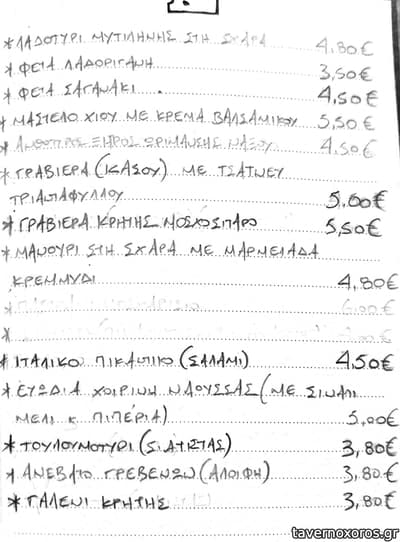 * ΛΑΔΟΤΥΡΙ ΜΥΤΙΛΗΝΗΣ ΣΤΗ ΣΧΑΡΑ 4,80€
* ΦΕΤΑ ΛΑΔΟΡΙΓΑΝΗ 3,50€
* ΦΕΤΑ ΣΑΓΑΝΑΚΙ 4,50€
* ΜΑΣΤΕΛΟ ΧΙΟΥ ΜΕ ΚΡΕΜΑ ΒΑΛΣΑΜΙΚΟΥ 5,50€
* ΞΗΡΟΣ ΩΡΙΜΑΝΣΗΣ ΝΑΞΟΥ 4,50€
* ΓΡΑΒΙΕΡΑ (ΚΑΣΟΥ) ΜΕ ΤΣΑΤΝΕΥ
ΤΡΙΑΝΤΑΦΥΛΛΟΥ 5,60€
* ΓΡΑΒΙΕΡΑ ΚΡΗΤΗΣ ΜΟΣΧΟΣΙΤΑΡΟ 5,50€
* ΜΑΝΟΥΡΙ ΣΤΗ ΣΧΑΡΑ ΜΕ ΜΑΡΜΕΛΑΔΑ
ΚΡΕΜΜΥΔΙ 4,80€
* 6,00€
*
* ΙΤΑΛΙΚΟ ΠΙΚΑΝΤΙΚΟ (ΣΑΛΑΜΙ) 4,50€
* ΕΥΩΔΙΑ ΧΟΙΡΙΝΗ ΝΑΟΥΣΣΑΣ (ΜΕ ΣΙΝΑΠΙ
ΜΕΛΙ Κ ΠΙΠΕΡΙΑ) 5,00€
* ΤΟΥΛΟΥΜΟΤΥΡΙ (ΣΙΑΤΙΣΤΑΣ) 3,80€
* ΑΝΕΒΑΤΟ ΓΡΕΒΕΝΩΝ (ΑΛΟΙΦΗ) 3,80€
* ΓΑΛΕΝΙ ΚΡΗΤΗΣ 3,80€
tavernoxoros.gr